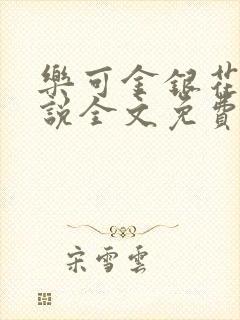 樂可金銀花
說全文免費
宋雪雲